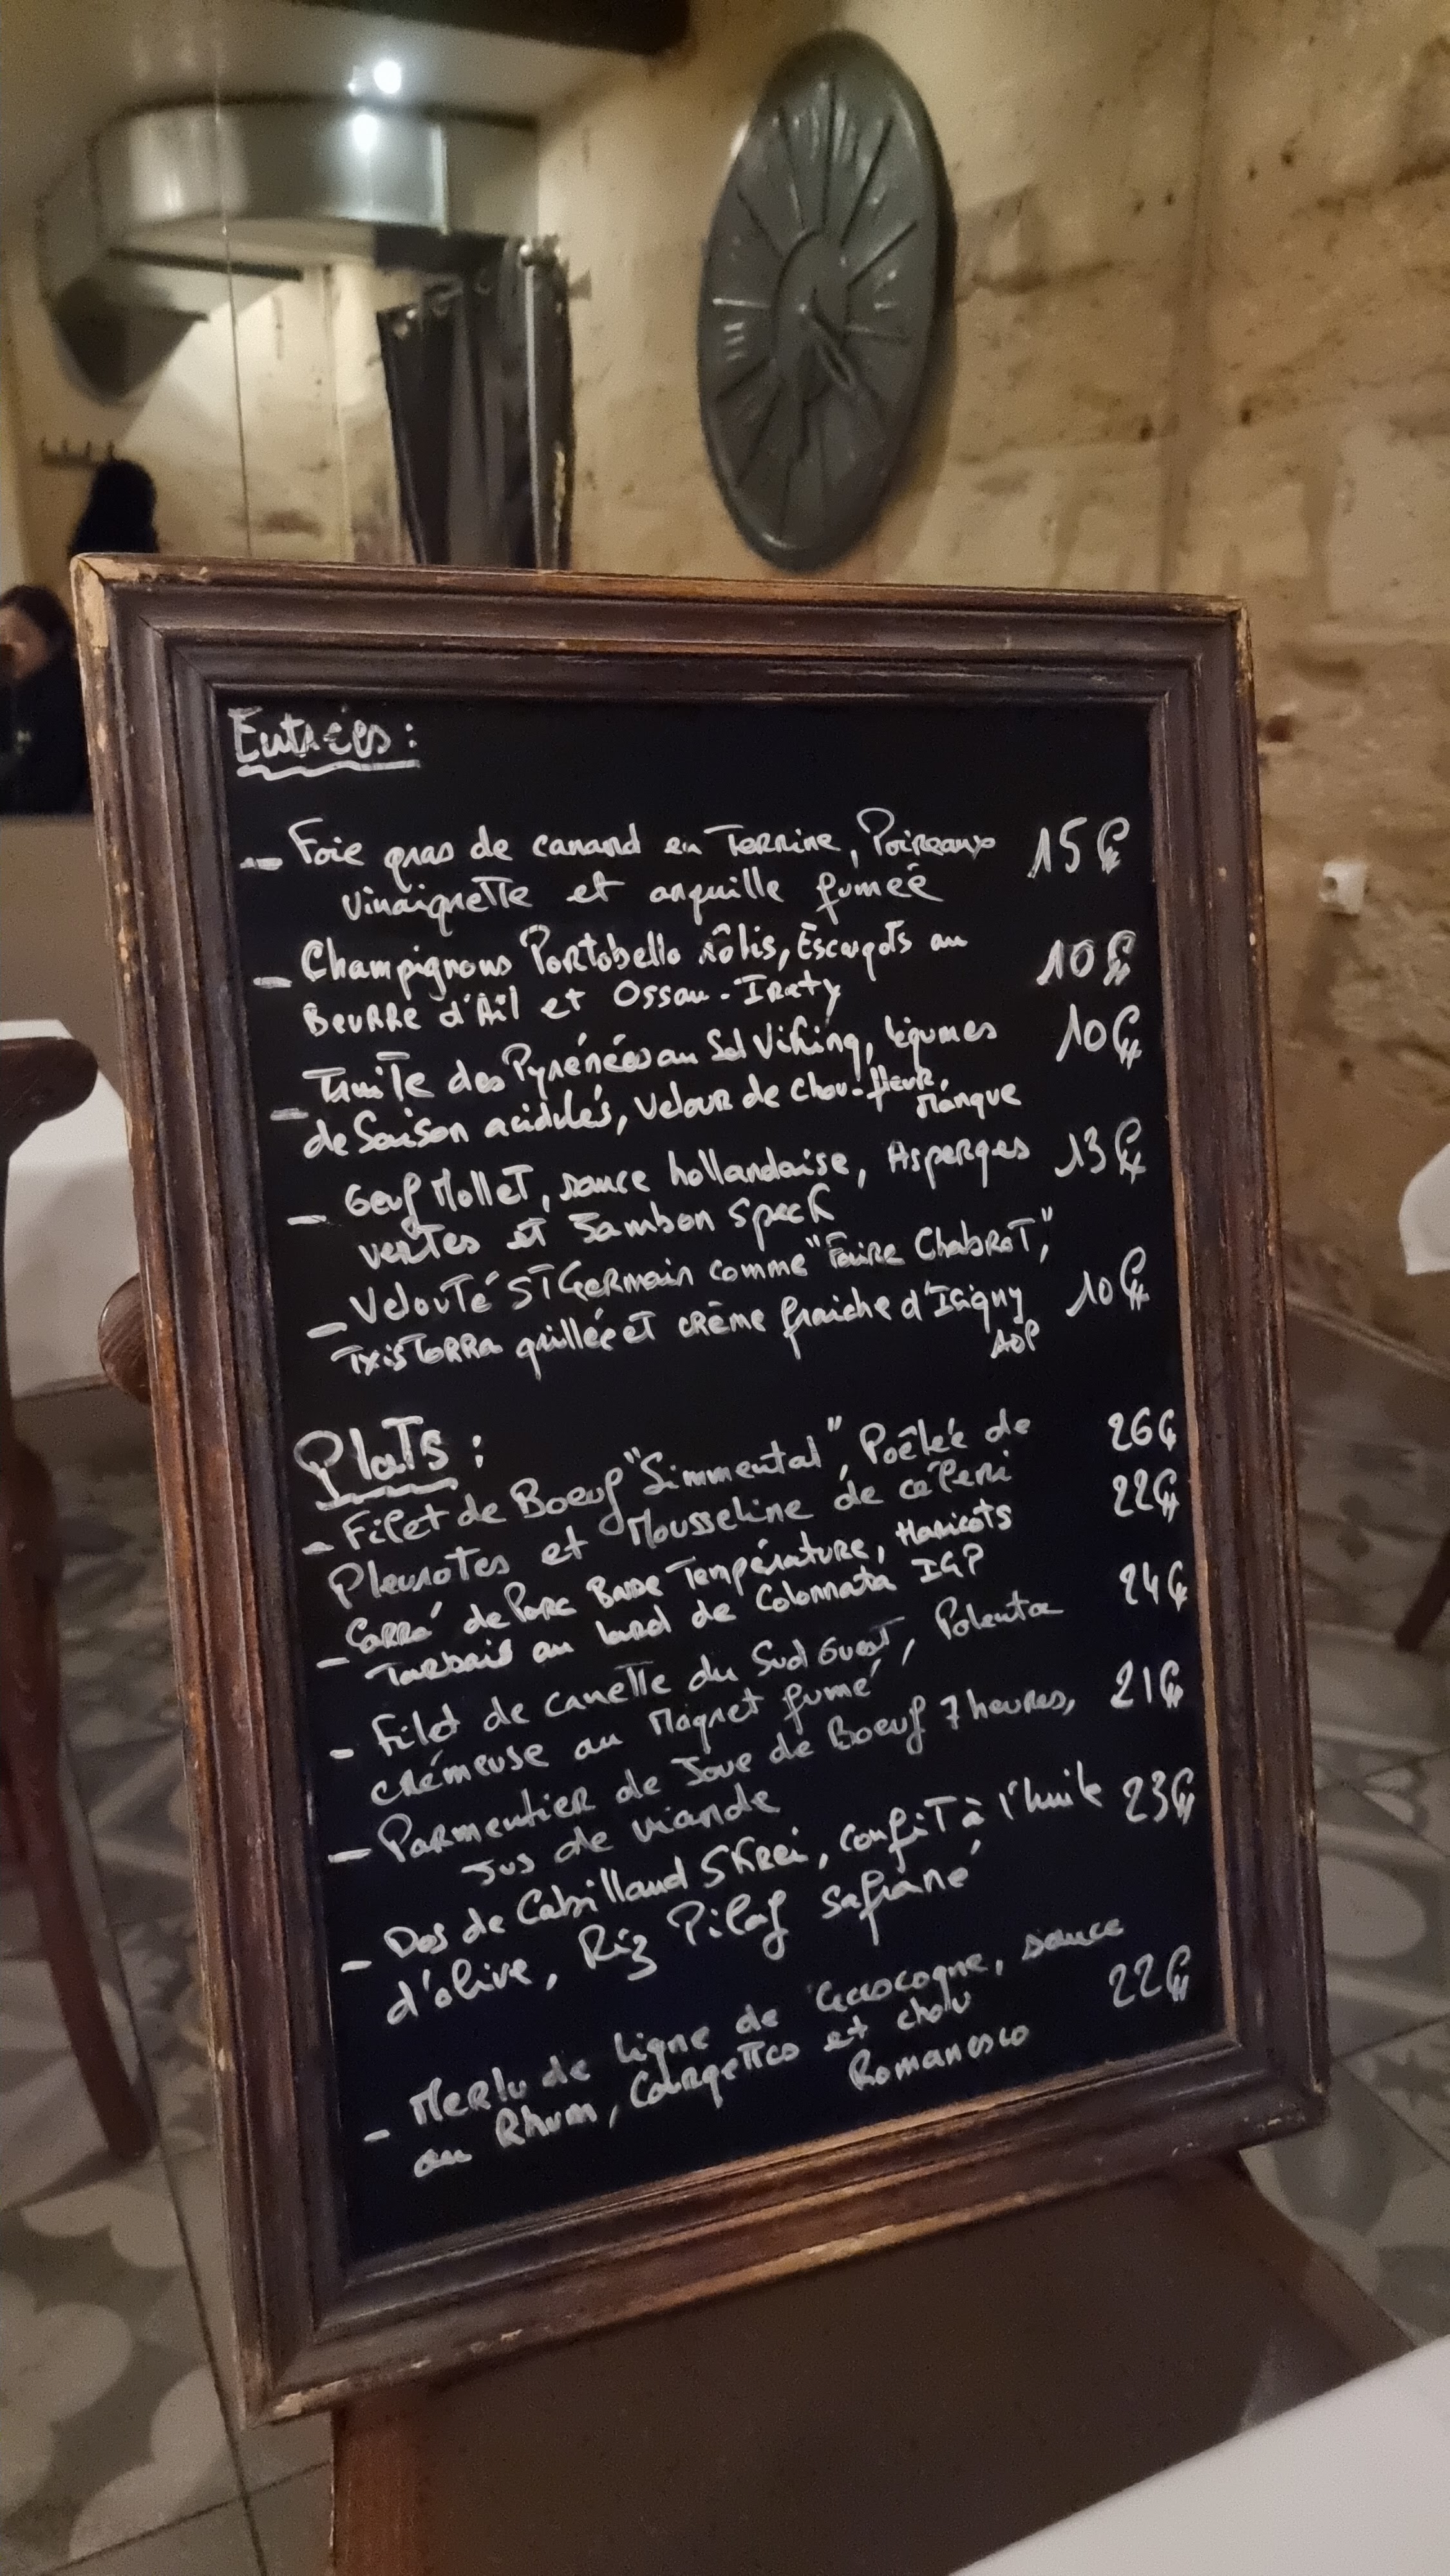 Entrées :
- Foie gras de canard en Terrine, Poireaux 15€
vinaigrette et anguille fumée
- Champignons Portobello rôtis, Escargots au 10€
Beurre d'Ail et Ossau-Iraty
- Truite des Pyrénées au Sel Viking, légumes 10€
de Saison acidulés, velour de chou-fleur,
Mangue
- Oeuf Mollet, sauce hollandaise, Asperges 13€
vertes et Jambon Speck
- Velouté St Germain comme "Faire Chabrot",
Txistorra grillée et crème fraiche d'Isigny 10€
AOP
Plats :
- Filet de Boeuf "Simmental", Poêlée de 26€
Pleurotes et Mousseline de céleri
- Carré de Porc Basse Température, Haricots 22€
Tarbais au lard de Colonnata IGP
- Filet de canette du Sud Ouest, Polenta 24€
crémeuse au Magret fumé
- Parmentier de Joue de Boeuf 7 heures, 21€
Jus de viande
- Dos de Cabillaud Skrei, confit à l'huile 23€
d'olive, Riz Pilaf safrané
- Merlu de ligne de Gascogne, sauce 22€
au Rhum, Courgettes et chou
Romanesco